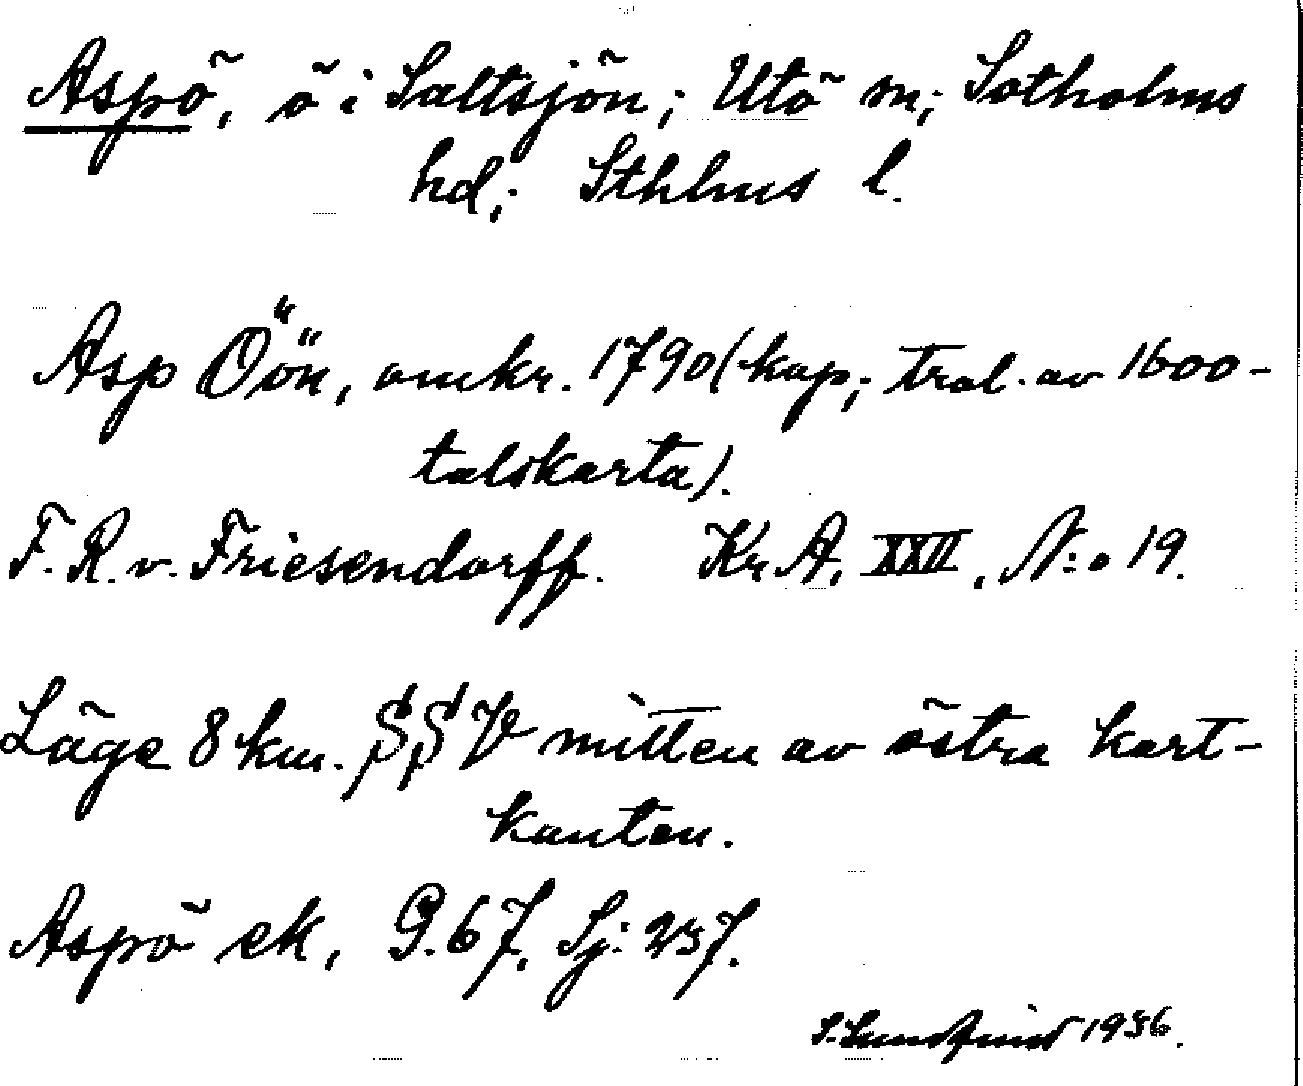 Aspö, ö i Saltsjön; Utö sn; Sotholms
hd; Sthlms l.
Asp Öön, omkr. 1790 (kop; trol. av 1600-
talskarta).
F. R. v. Friesendorff. Kr A. XXII, N:o 19.
Läge 8 km. SSV mitten av östra kart-
kanten.
Aspö ek, G. 67, Sj: 237.
1936.